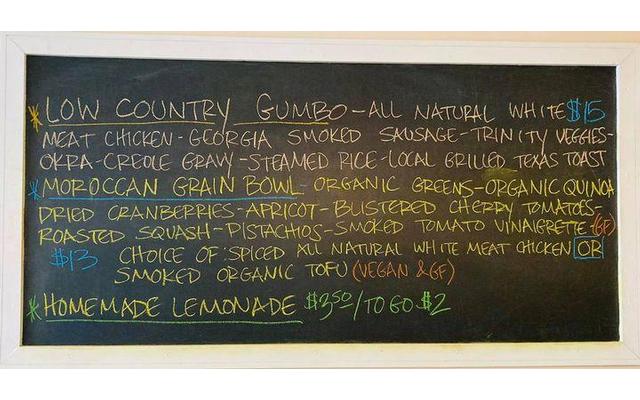 * LOW COUNTRY GUMBO - ALL NATURAL WHITE $15
MEAT CHICKEN - GEORGIA SMOKED SAUSAGE - TRINITY VEGGIES -
OKRA - CREOLE GRAVY - STEAMED RICE - LOCAL GRILLED TEXAS TOAST
* MOROCCAN GRAIN BOWL - ORGANIC GREENS - ORGANIC QUINOA
DRIED CRANBERRIES - APRICOT - BLISTERED CHERRY TOMATOES -
ROASTED SQUASH - PISTACHIOS - SMOKED TOMATO VINAIGRETTE (GF)
$13 CHOICE OF: SPICED ALL NATURAL WHITE MEAT CHICKEN OR
SMOKED ORGANIC TOFU (VEGAN & GF)
* HOMEMADE LEMONADE $3.50 / TO GO $2